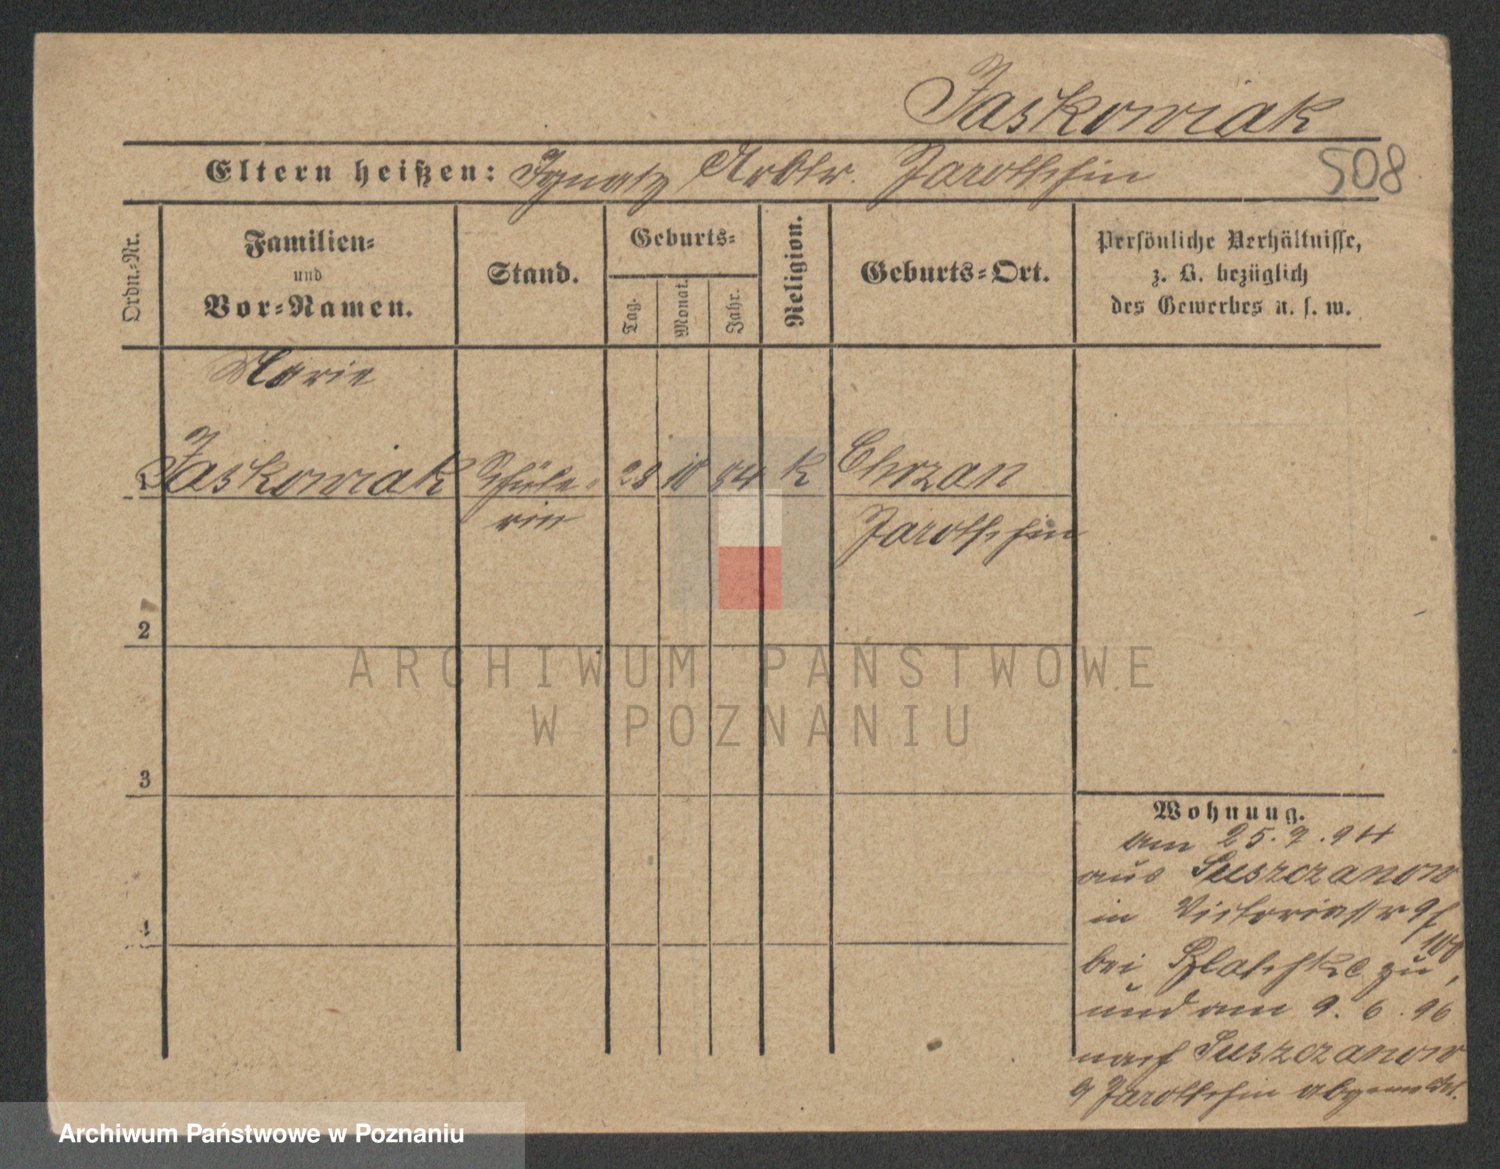 Jaskowiak
Eltern heißen: Ignatz Arbtr. Jarotschin
508
Ordn.-Nr.
Familien-
und
Vor-Namen.
Stand.
Geburts-
Tag.
Monat.
Jahr.
Religion.
Geburts-Ort.
Persönliche Verhältnisse,
z. B. bezüglich
des Gewerbes u. s. w.
Marie
1 Jaskowiak Schüle- 28 10 84 K Chrzan
rin Jarotschin
2
3
4
ARCHIWUM PAŃSTWOWE
W POZNANIU
Wohnung.
am 25. 9. 94
aus Suszczanow
in Victoriastr 9
bei zu,
und am 9. 6. 96
nach Suszczanow
Jarotschin abgemeldet.
Archiwum Państwowe w Poznaniu